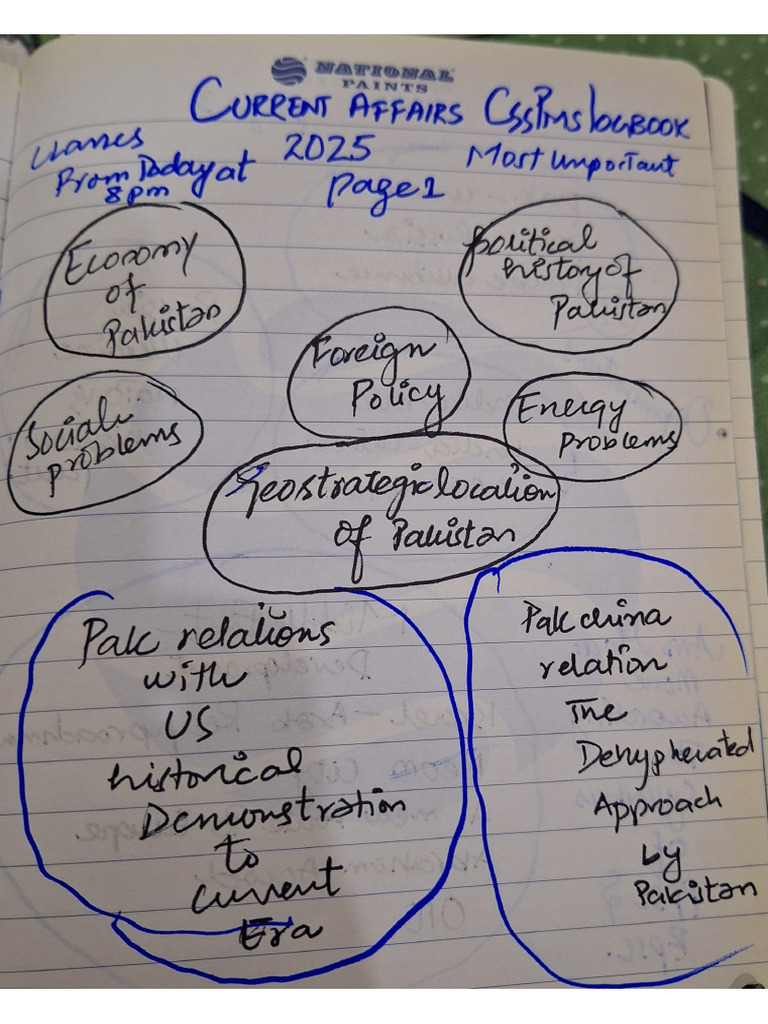 NATIONAL
PAINTS
CURRENT AFFAIRS CssPms logBOOK
2025
Classes
From Today at
8pm
Most important
page 1
Economy
of
Pakistan
political
history of
Pakistan
Foreign
Policy
Social
problems
Energy
problems
Geostrategic location
of Pakistan
Pak relations
with
US
historical
Demonstration
to
current
Era
Pak china
relation
The
Dehypherated
Approach
by
Pakistan